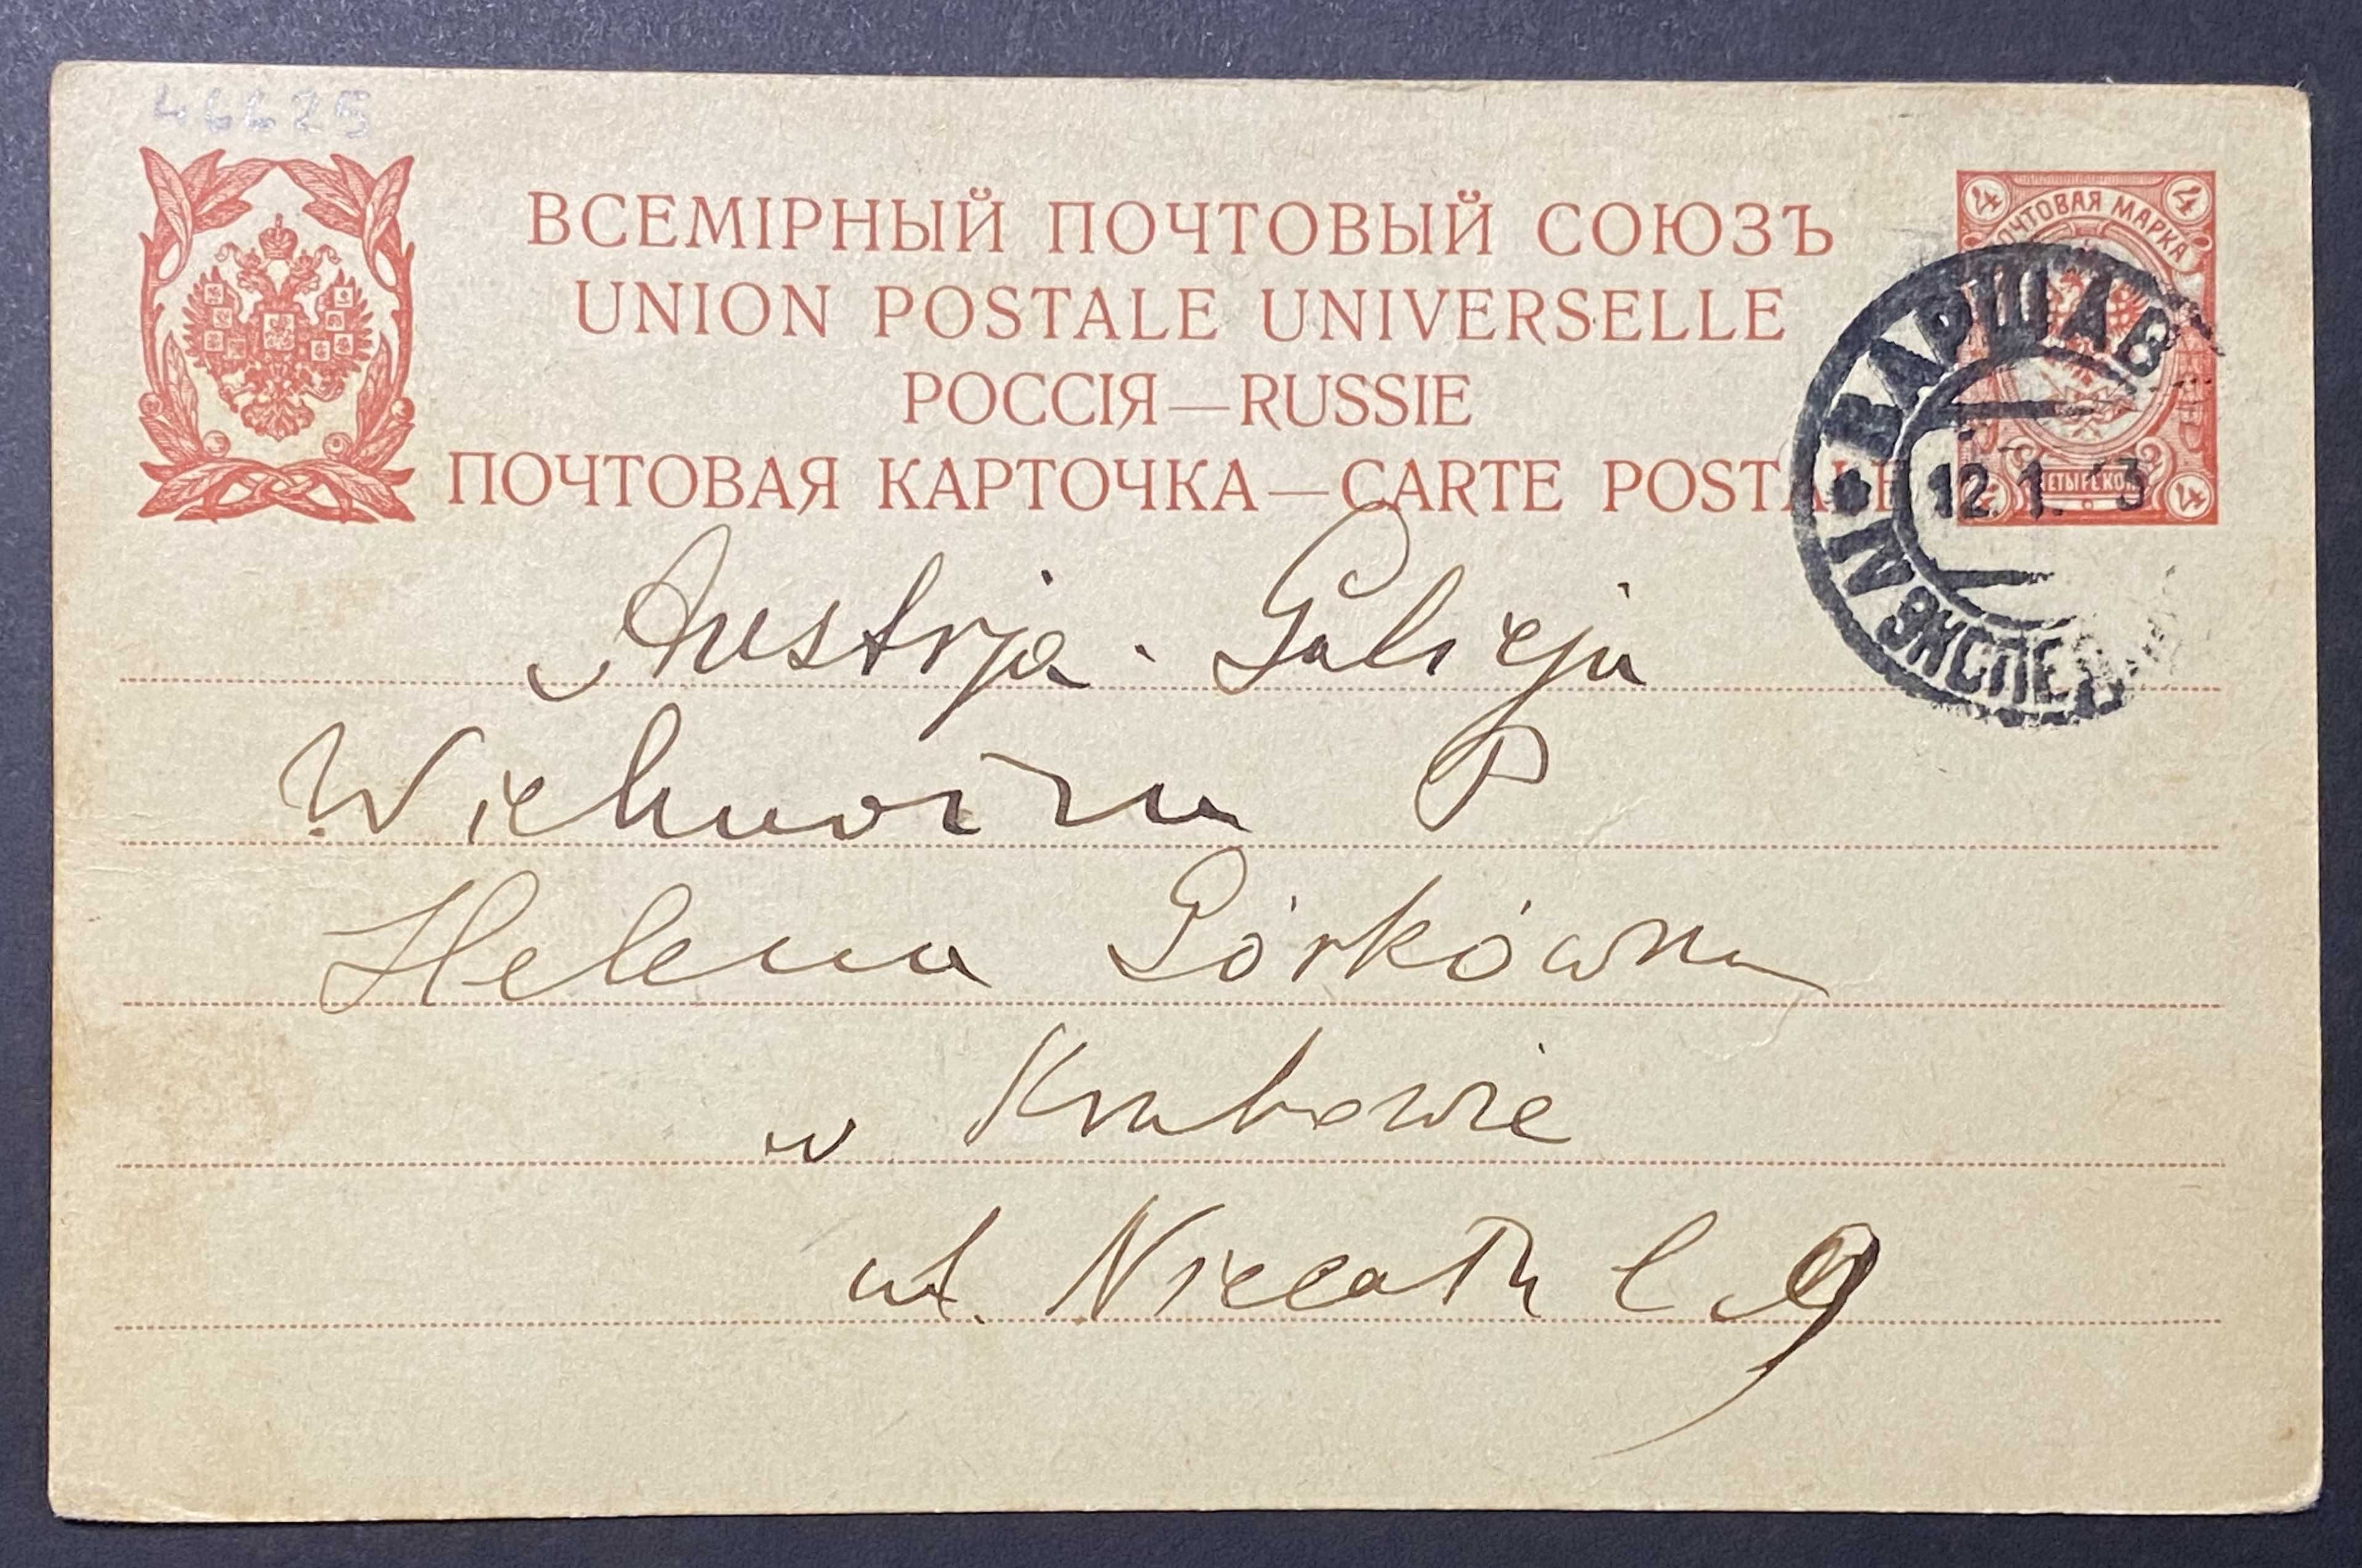 46625
ВСЕМІРНЫЙ ПОЧТОВЫЙ СОЮЗЪ
UNION POSTALE UNIVERSELLE
РОССІЯ—RUSSIE
ПОЧТОВАЯ КАРТОЧКА—CARTE POSTALE
4 ПОЧТОВАЯ МАРКА 4
ВАРШАВ
12.1.13
IV ЭКСПЕД
4
Austrja - Galicja
Wielmożna P
Helena Górkówna
w Krakowie
ul. Niecała l 9